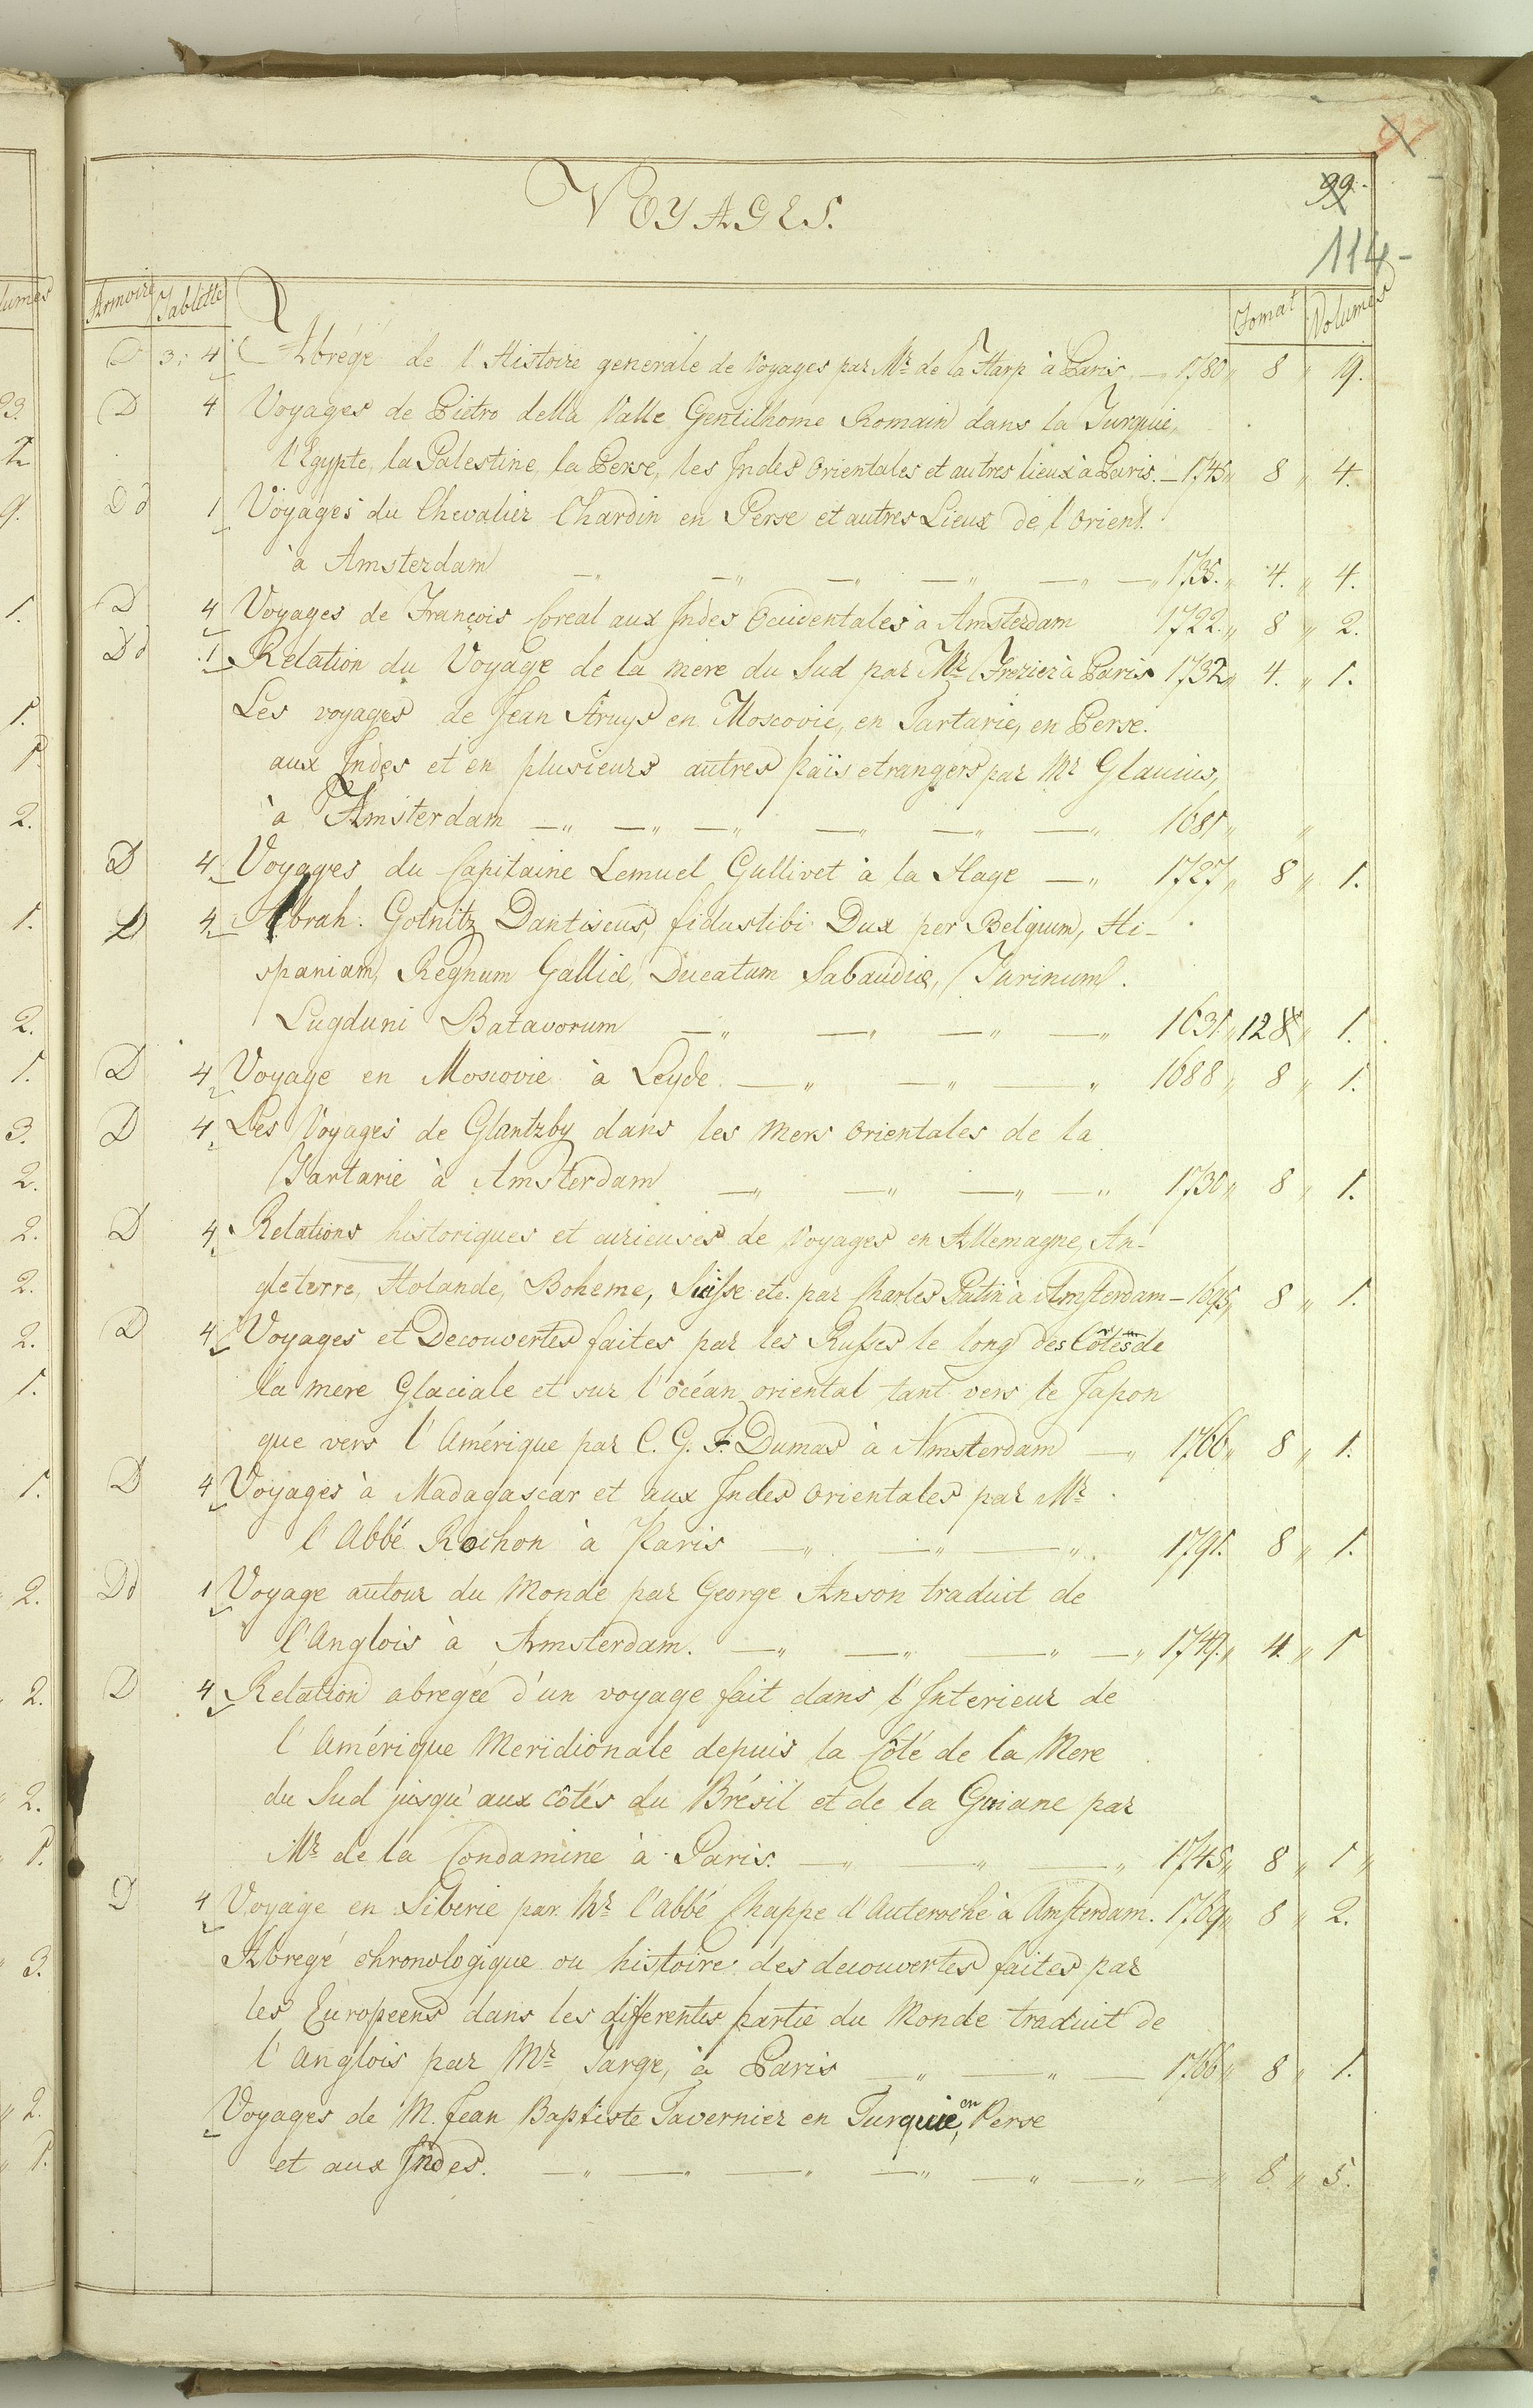 97
VOYAGES.
99.
114-
Armoire Tablette Format Volumes
D 3: 4 Abregé de l'Histoire generale de Voyages par Mr de la Harp à Paris — 1780 „ 8 „ 19.
D 4 Voyages de Pietro della Valle Gentilhome Romain dans la Turquie,
l'Egypte, la Palestine, la Perse, les Indes Orientales et autres lieux à Paris. — 1745 „ 8 „ 4.
Dd 1 Voyages du Chevalier Chardin en Perse et autres Lieux de l'Orient
à Amsterdam —„ —„ —„ —„ —„ —„ 1735. „ 4. „ 4.
D 4 Voyages de François Coreal aux Indes Occidentales à Amsterdam 1722. „ 8 „ 2.
Dd 1 Relation du Voyage de la mere du Sud par Mr Frezier à Paris 1732 „ 4. „ 1.
Les voyages de Jean Struys en Moscovie, en Tartarie, en Perse.
aux Indes et en plusieurs autres païs etrangers par Mr Glanius,
à Amsterdam —„ —„ —„ —„ —„ —„ 1681 „ „
D 4 Voyages du Capitaine Lemuel Gullivet à la Haye —„ 1727 „ 8 „ 1.
D 4 Abrah. Golnitz Dantiscus, fidus tibi Dux per Belgium, Hi-
spaniam, Regnum Galliæ, Ducatum Sabaudiæ, Turinum.
Lugduni Batavorum —„ —„ —„ —„ 1631 „ 12 8 „ 1.
D 4 Voyage en Moscovie à Leyde. —„ —„ —„ 1688 „ 8 „ 1.
D 4 Les Voyages de Glantzby dans les Mers Orientales de la
Tartarie à Amsterdam —„ —„ —„ —„ 1730 „ 8 „ 1.
D 4 Relations historiques et curieuses de Voyages en Allemagne, An-
gleterre, Holande, Boheme, Suisse etc. par Charles Patin à Amsterdam — 1695 „ 8 „ 1.
D 4 Voyages et Decouvertes faites par les Russes le long des Côtes de
la mere Glaciale et sur l'océan oriental tant vers le Japon
que vers l'Amérique par C. G. F. Dumas à Amsterdam —„ 1766 „ 8 „ 1.
D 4 Voyages à Madagascar et aux Indes Orientales par Mr
l'Abbé Rochon à Paris —„ —„ —„ 1791. 8 „ 1.
Dd 1 Voyage autour du Monde par George Anson traduit de
l'Anglois à Amsterdam. —„ —„ —„ —„ 1749. „ 4 „ 1
D 4 Relation abregée d'un voyage fait dans l'Interieur de
l'Amérique Meridionale depuis la Côté de la Mere
du Sud jusqu'aux côtés du Brésil et de la Guiane par
Mr de la Condamine à Paris. —„ „ —„ 1745 „ 8 „ 1 „
D 4 Voyage en Siberie par Mr l'abbé Chappe d'Auteroche à Amsterdam. 1769 „ 8 „ 2.
Abregé chronologique ou histoire des decouvertes faites par
les Europeens dans les differentes partie du Monde traduit de
l'anglois par Mr Targe, à Paris —„ —„ — 1766 „ 8 „ 1.
Voyages de M. Jean Baptiste Tavernier en Turquie, en Perse
et aux Indes. —„ —„ —„ —„ —„ —„ —„ 8. „ 5.